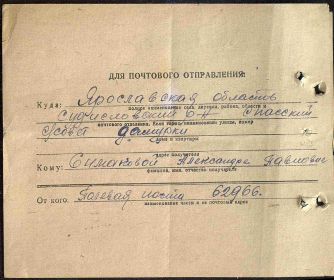 ДЛЯ ПОЧТОВОГО ОТПРАВЛЕНИЯ:
Куда: Ярославская область
полное наименование села, деревни, района, области и
р-н Спасский
почтового отделения, если город, наименование улицы, номер
дома и квартиры
адрес получателя
Кому: Симаковой Александре Павловне
фамилия, имя, отчество получателя
От кого: Полевая почта 62966.
наименование части и ее почтовый адрес